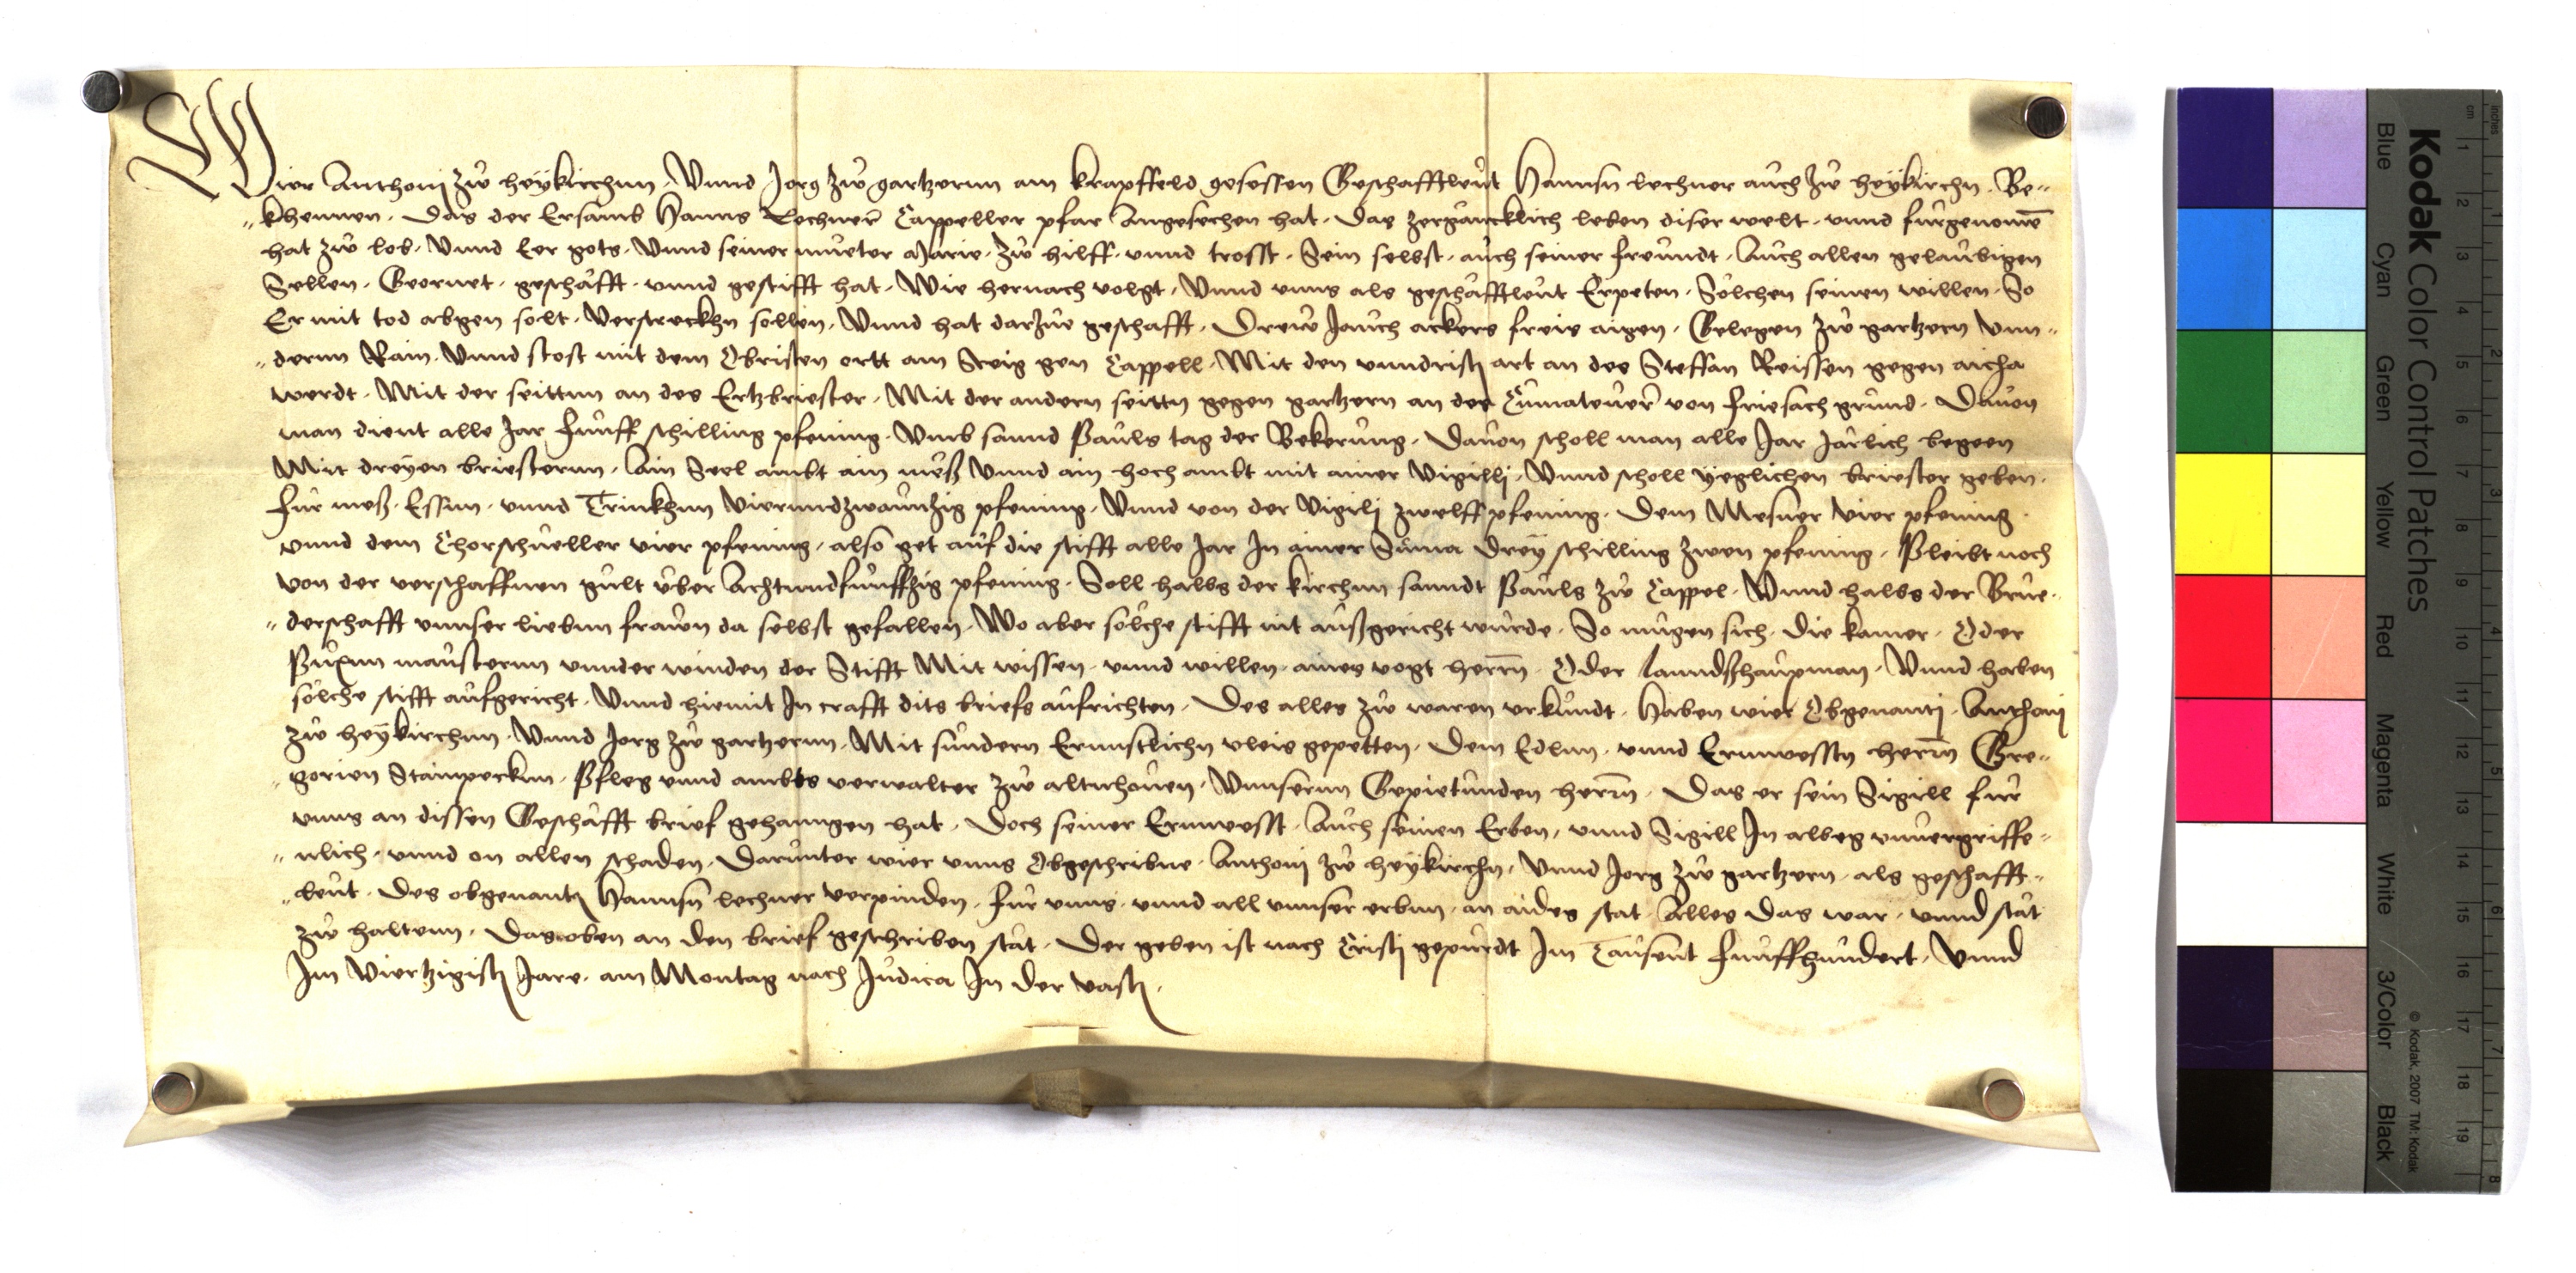 Wier Anthoni zw heykirchnn, Vnnd Jorg zw gartzernn am krapffeld gesessen Geschafftleut Hannsn lechner auch zw heykirchn, Be„
„khennen, Das der Ersamb Hanns Lechner Cappeller pfar Angesechen hat, Das zergäncklich leben diser welt, vnnd furgenome
hat zw lob, Vnnd Eer gots, Vnnd seiner mueter Marie, zw hilff, vnnd trosst, Sein selbst, auch seiner freundt, Auch allen gelaubigen
Sellen, Geornet, geschafft, vnnd gestifft hat, Wie hernach volgt, Vnnd vnns als geschafftleut Erpeten, Solchen seinen willen, So
Er mit tod abgen solt, Verstreckhn sollen, Vnnd hat darzw geschafft, Drew Jauch ackers freis aigen, Gelegen zw gartzern Vnn„
„dernn Rain, Vnnd stost mit dem Obristen ortt am Steig gen Cappell, Mit den vnndristn art an des Steffan Reissen gegen aicha
werdt, Mit der seittnn an des Ertzbriester, Mit der andern seittn gegen gartzern an der von friesach grund, Dauon
man dient alle Jar funff schilling pfening, Vmb sannd Pauls tag der Bekerung, Dauon scholl man alle Jar Järlich begeen
Mit dreyen briesternn, Ain Seel ambt ain mess Vnnd ain hoch ambt mit ainer Vigilli, Vnnd scholl yeglichen briester geben,
fur mess, Essnn, vnnd Trinkhnn Vierundzwaintzig pfening, Vnnd von der Vigilj zwelff pfening, Dem Mesner Vier pfening
vnnd dem Chorschueller vier pfening, also get auf die stifft alle Jar In ainer Suma Drey schilling zwen pfening, Bleibt noch
von der verschaffnen gult vber Achtundfunffzig pfening, Soll halbs der kirchnn sanndt Pauls zw Cappel, Vnnd halbs der Brue„
„derschafft vnnser liebnn frawn da selbst gefallen, Wo aber solche stifft nit aussgericht wurde, So mugen sich, die kamer, Oder
Puxnn maisternn vnnder winden der Stifft Mit wissen, vnnd willen, aines vogt herrn, Oder lanndsshaupman, Vnnd haben
solche stifft aufgericht, Vnnd hiemit In crafft dits briefs aufrichten, Des alles zw waren vrkundt, haben wier Obgenantj, Anthonj
zw heykirchnn, Vnnd Jorg zw gartzernn, Mit sundern Ernnstlichn vleis gepetten, Dem Edlnn, vnnd Ernnvesstn herrn Gre„
„gorien Stainpecknn, Pfleg vnnd ambts verwalter zw altnhouen, Vnnsernn Gepietunden herrn, Das er sein Sigill fur
vnns an dissen Geschäfft brief gehanngen hat, Doch seiner Ernnvesst, Auch seinen Erben, vnnd Sigill In albeg vnuergriffe„
„nlich, vnnd on allen schaden, Darunter wier vnns Obgeschribne, Anthonj zw heykirchn, Vnnd Jorg zw gartzern, als geschafft„
„leut, Des obgenantn Hannsn lechner verpinden, fur vnns, vnnd all vnnser erbnn, an aides stat, Alles das war, vnnd stät
zw haltenn, Das oben an den brief geschriben stät, Der geben ist nach Cristj gepurdt Im Tausent funffhundert, Vnnd
Im Viertzigistn Jare, am Montag nach Judica In der vastn,
Kodak Color Control Patches
Blue Cyan Green Yellow Red Magenta White 3/Color Black
© Kodak, 2007 TM: Kodak
cm 1 2 3 4 5 6 7 8 9 10 11 12 13 14 15 16 17 18 19
inches 1 2 3 4 5 6 7 8